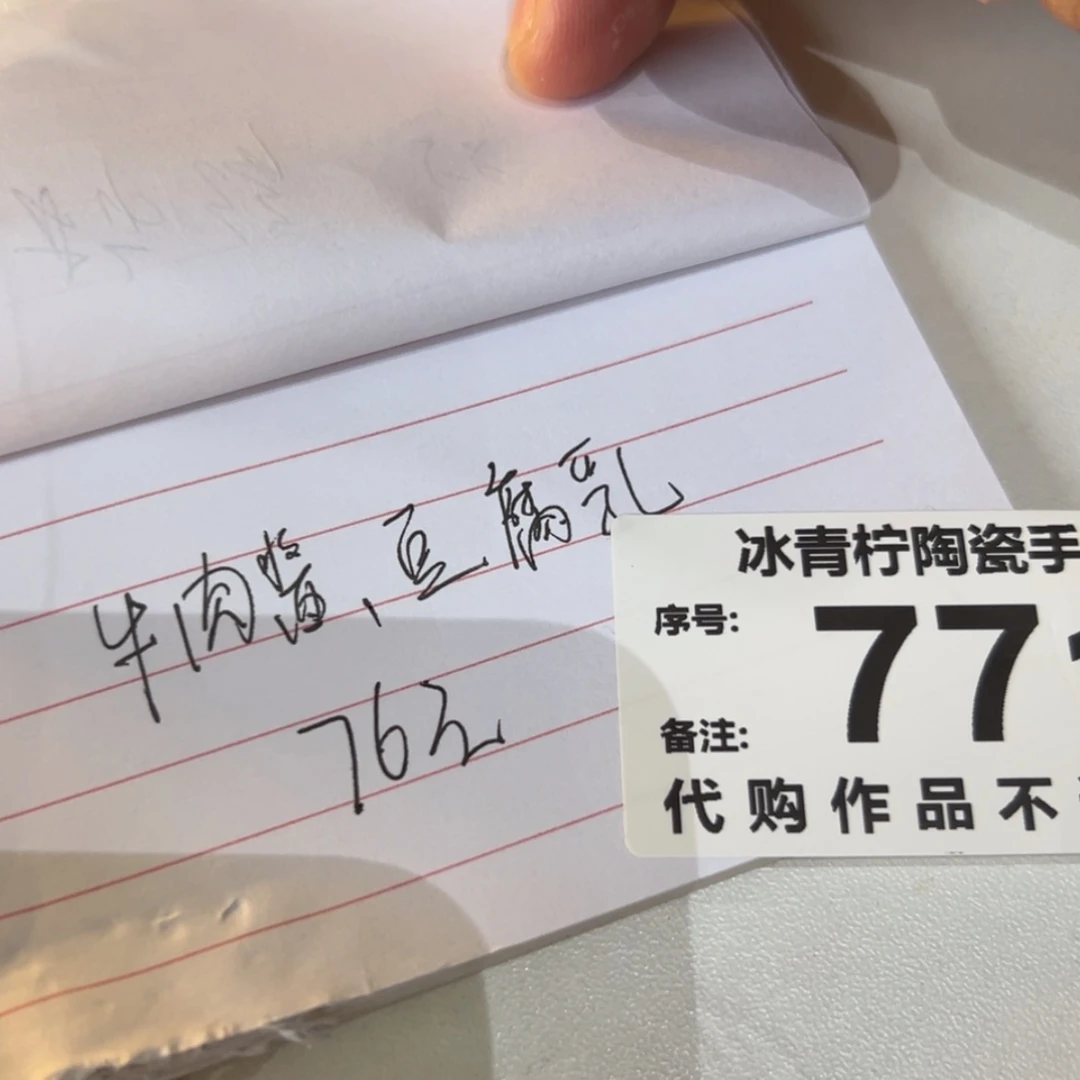 牛肉酱、豆腐乳
76元
冰青柠陶瓷手
序号: 77
备注:
代购作品不